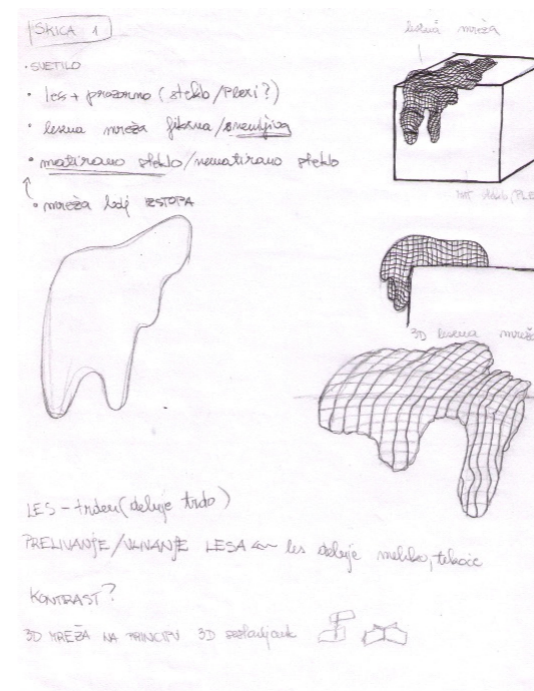 SKICA 1
lesena mreža
• SVETILO
• les + prozorno (steklo/Plexi?)
• lesena mreža fiksna/
• matirano steklo/nematirano steklo
• mreža bolj IZSTOPA
3D lesena
LES – trden (deluje trdo)
PRELIVANJE/VLIVANJE LESA ← les deluje mehko, tekoče
KONTRAST?
3D MREŽA NA PRINCIPU 3D sestavljank